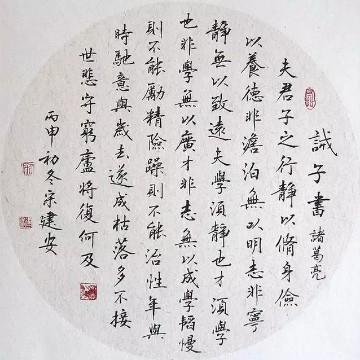 誡子書 諸葛亮
夫君子之行靜以脩身儉
以養德非澹泊無以明志非寧
靜無以致遠夫學須靜也才須學
也非學無以廣才非志無以成學韜慢
則不能勵精險躁則不能治性年與
時馳意與歲去遂成枯落多不接
世悲守窮廬將復何及
丙申初冬宋建安